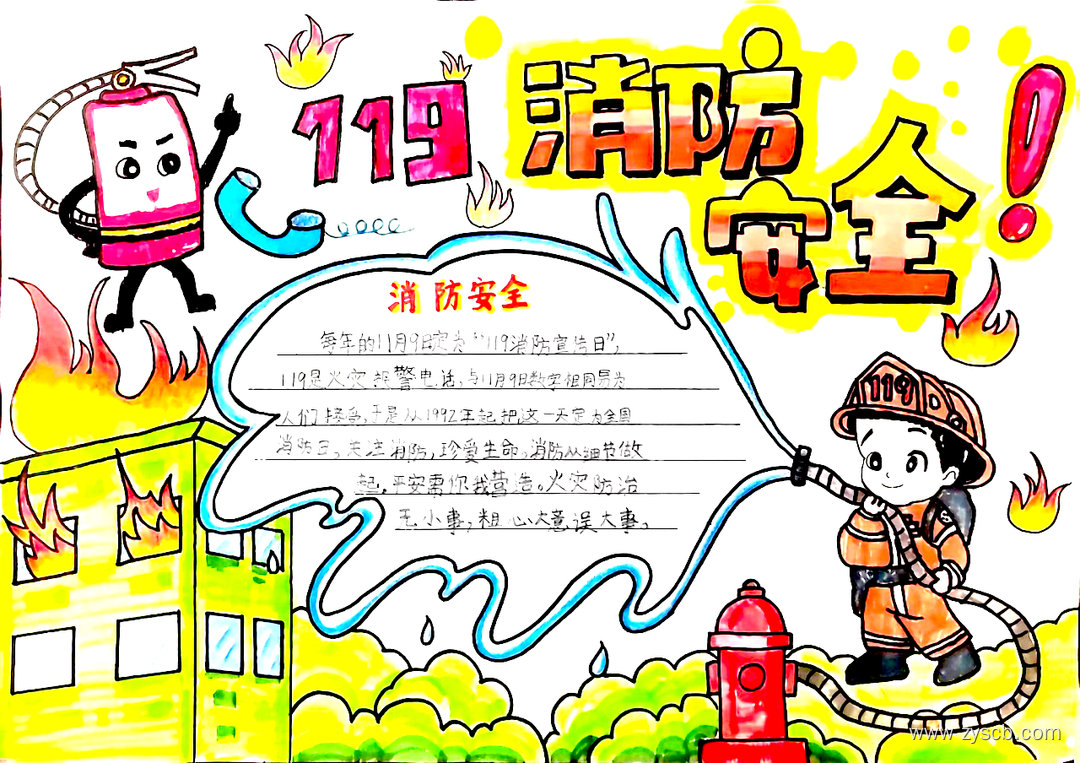 119消防
安全!
消防安全
每年的11月9日定为"119消防宣告日",
119是火灾报警电话,与11月9日数字相同易为
人们接受,于是从1992年起把这一天定为全国
消防日。关注消防,珍爱生命。消防从细节做
起,平安需你我营造。火灾防治
无小事,粗心大意误大事。
119
www.zyscb.com